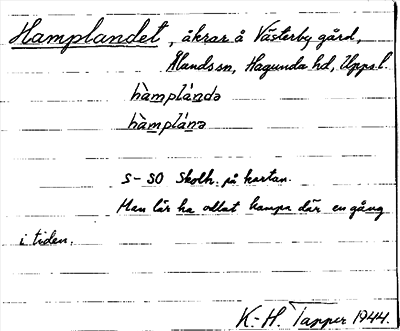 Hamplandet, åkrar å Västerby gård,
Ålands sn, Hagunda hd, Uppsl.
hàmplándə
hàmplánə
S-SO Skolh. på kartan.
Man lär ha odlat hampa där en gång
i tiden.
K.-H. Tapper 1944.